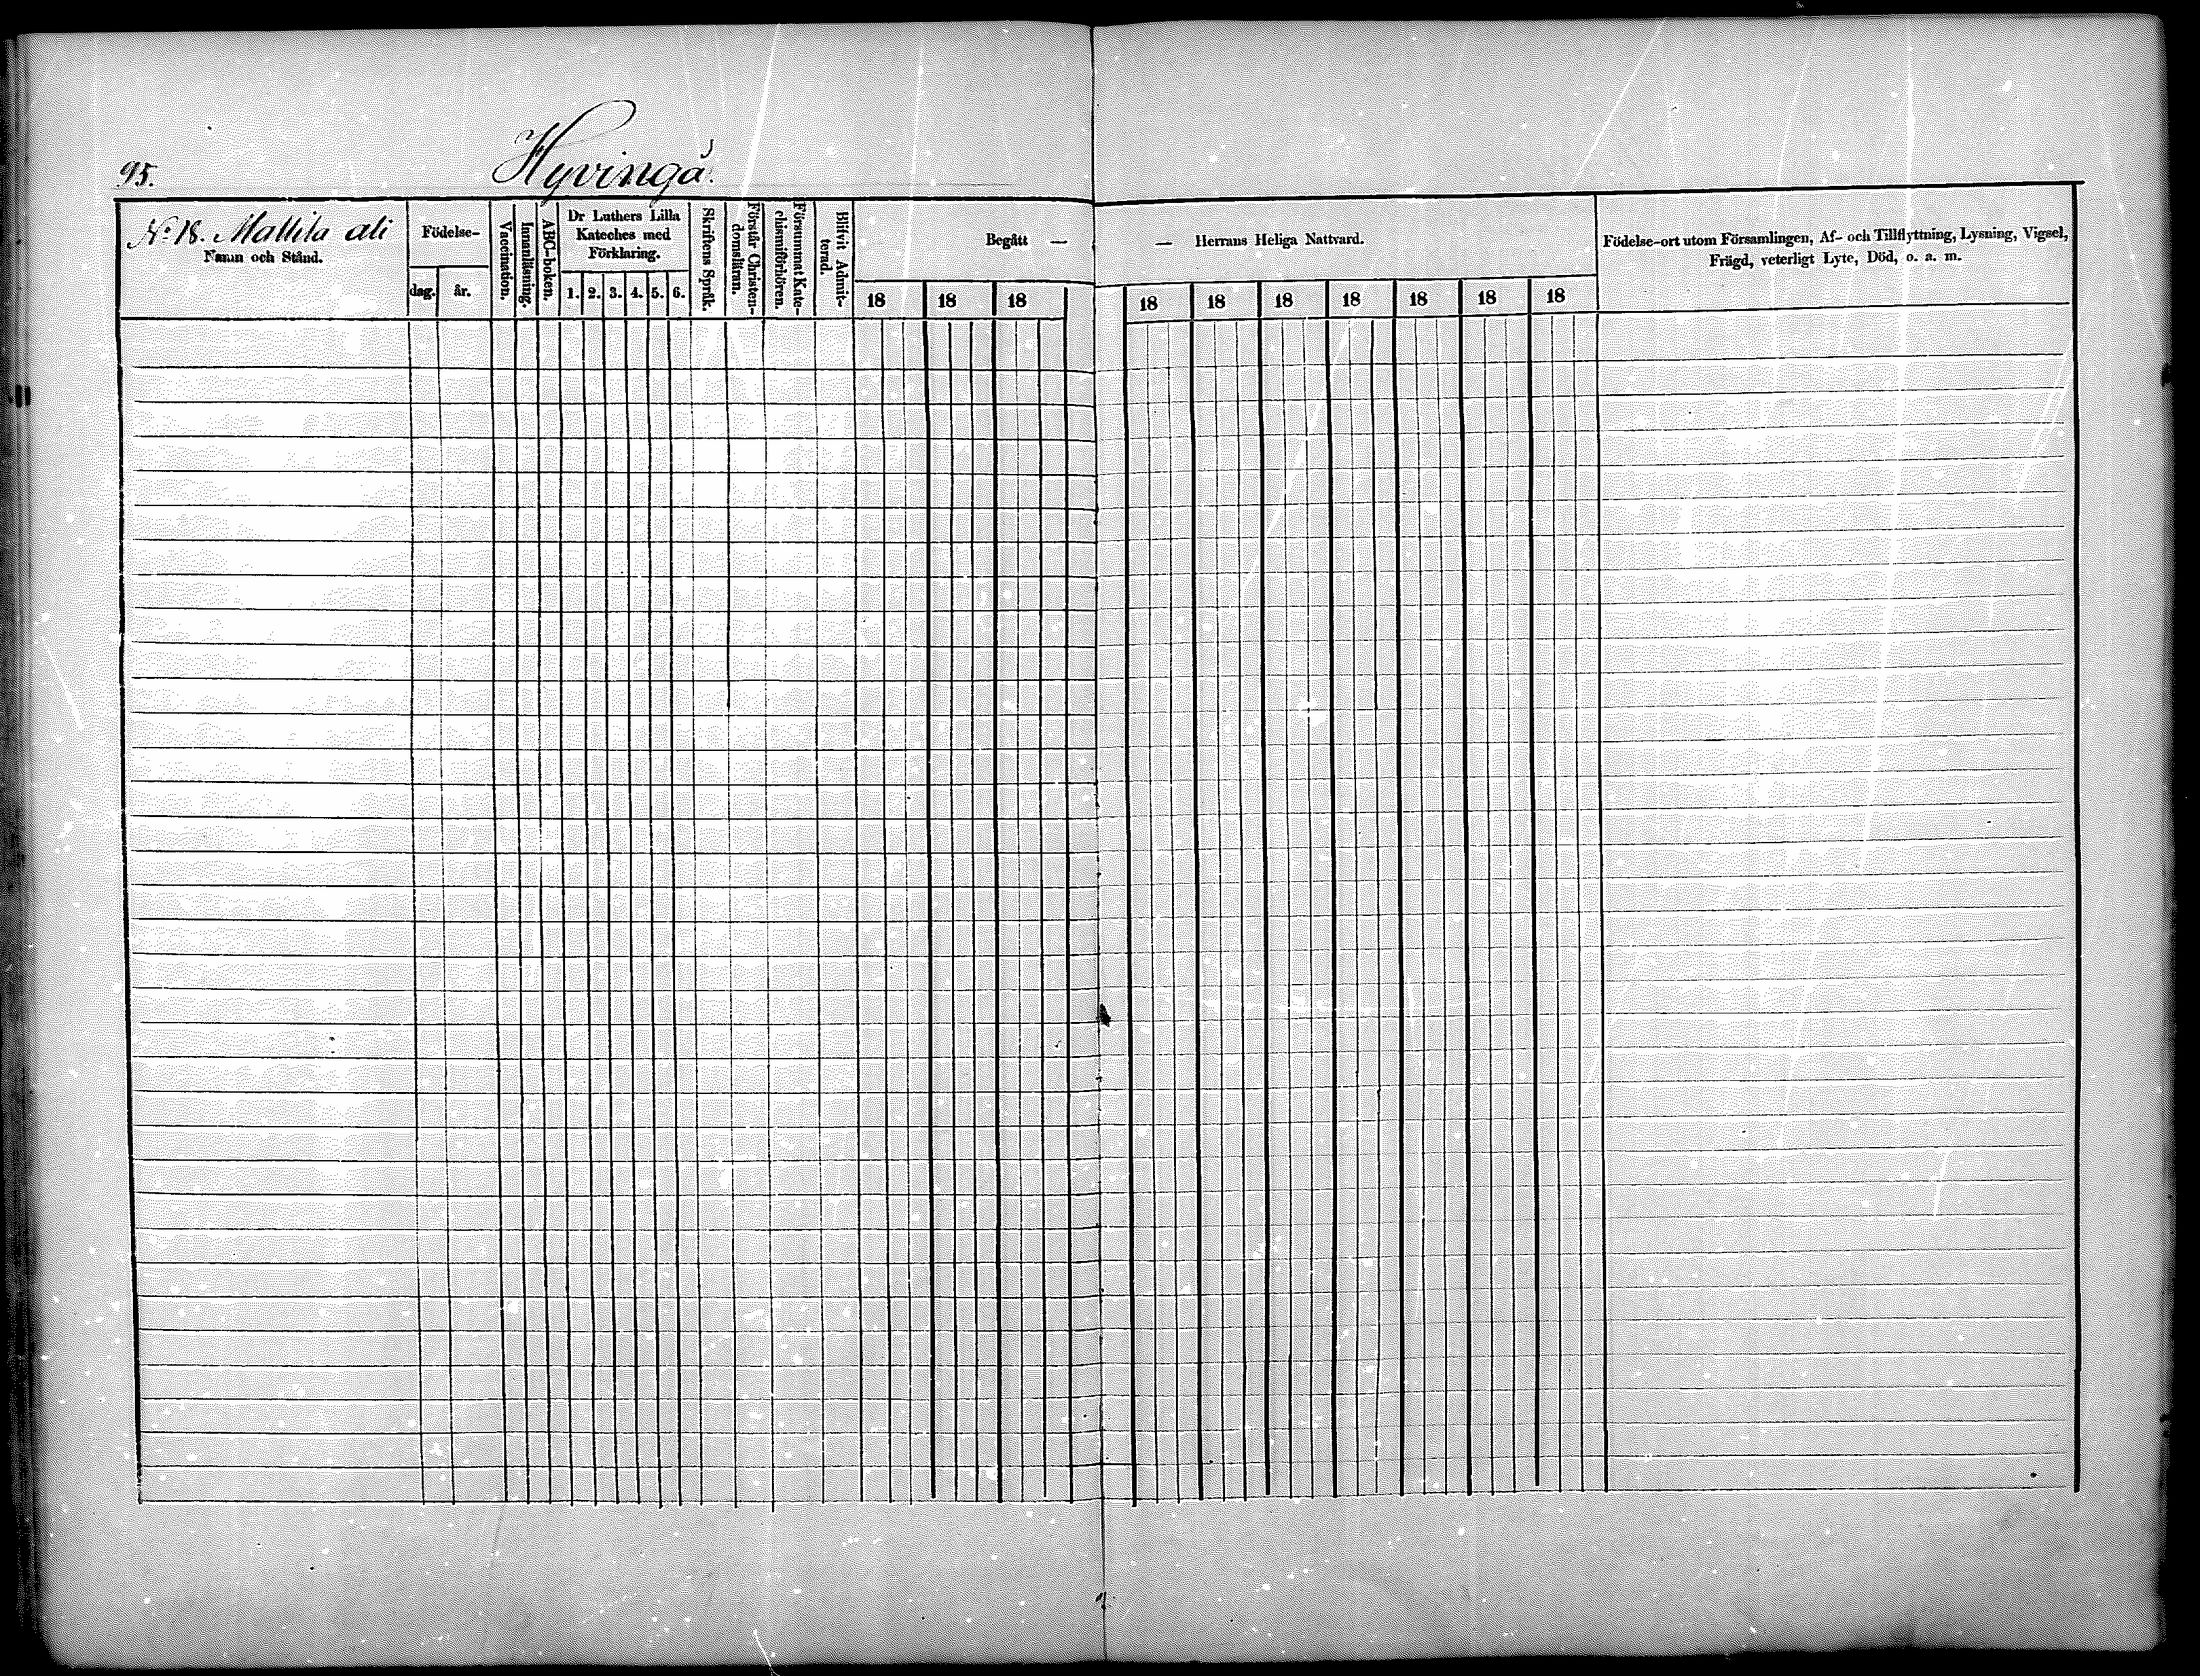 95.
Hyvingå.
No 18. Mattila ali
Namn och Stånd.
Födelse-
dag.
år.
Vaccination.
Innanläsning.
ABC-boken.
Dr Luthers Lilla
Kateches med
Förklaring.
1. 2. 3. 4. 5. 6.
Skriftens Språk.
Förstår Christen-
domsläran.
Försummat Kate-
chismiförhören.
Blifvit Admit-
terad.
Begått —
18 18 18
— Herrans Heliga Nattvard.
18 18 18 18 18 18 18
Födelse-ort utom Församlingen, Af- och Tillflyttning, Lysning, Vigsel,
Frägd, veterligt Lyte, Död, o. a. m.